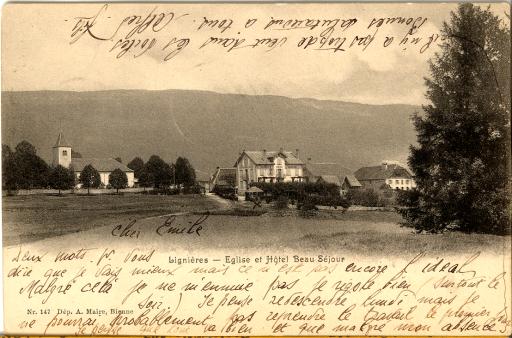 cher Emile
Lignières — Eglise et Hôtel Beau Séjour
Deux mots pr vous
dire que je vais mieux mais ce n'est pas encore l'idéal
Malgré cela je ne m'ennuie pas je rigole bien (surtout le
soir) Je pense redescendre lundi mais je
ne pourrai probablement pas reprendre le travail le premier
Je pense que tout va bien et que malgré mon absence
Nr. 147 Dép. A. Maire, Bienne
il n'y a pas trop de vent dans les voiles
Bonnes salutations à tous. Alfred